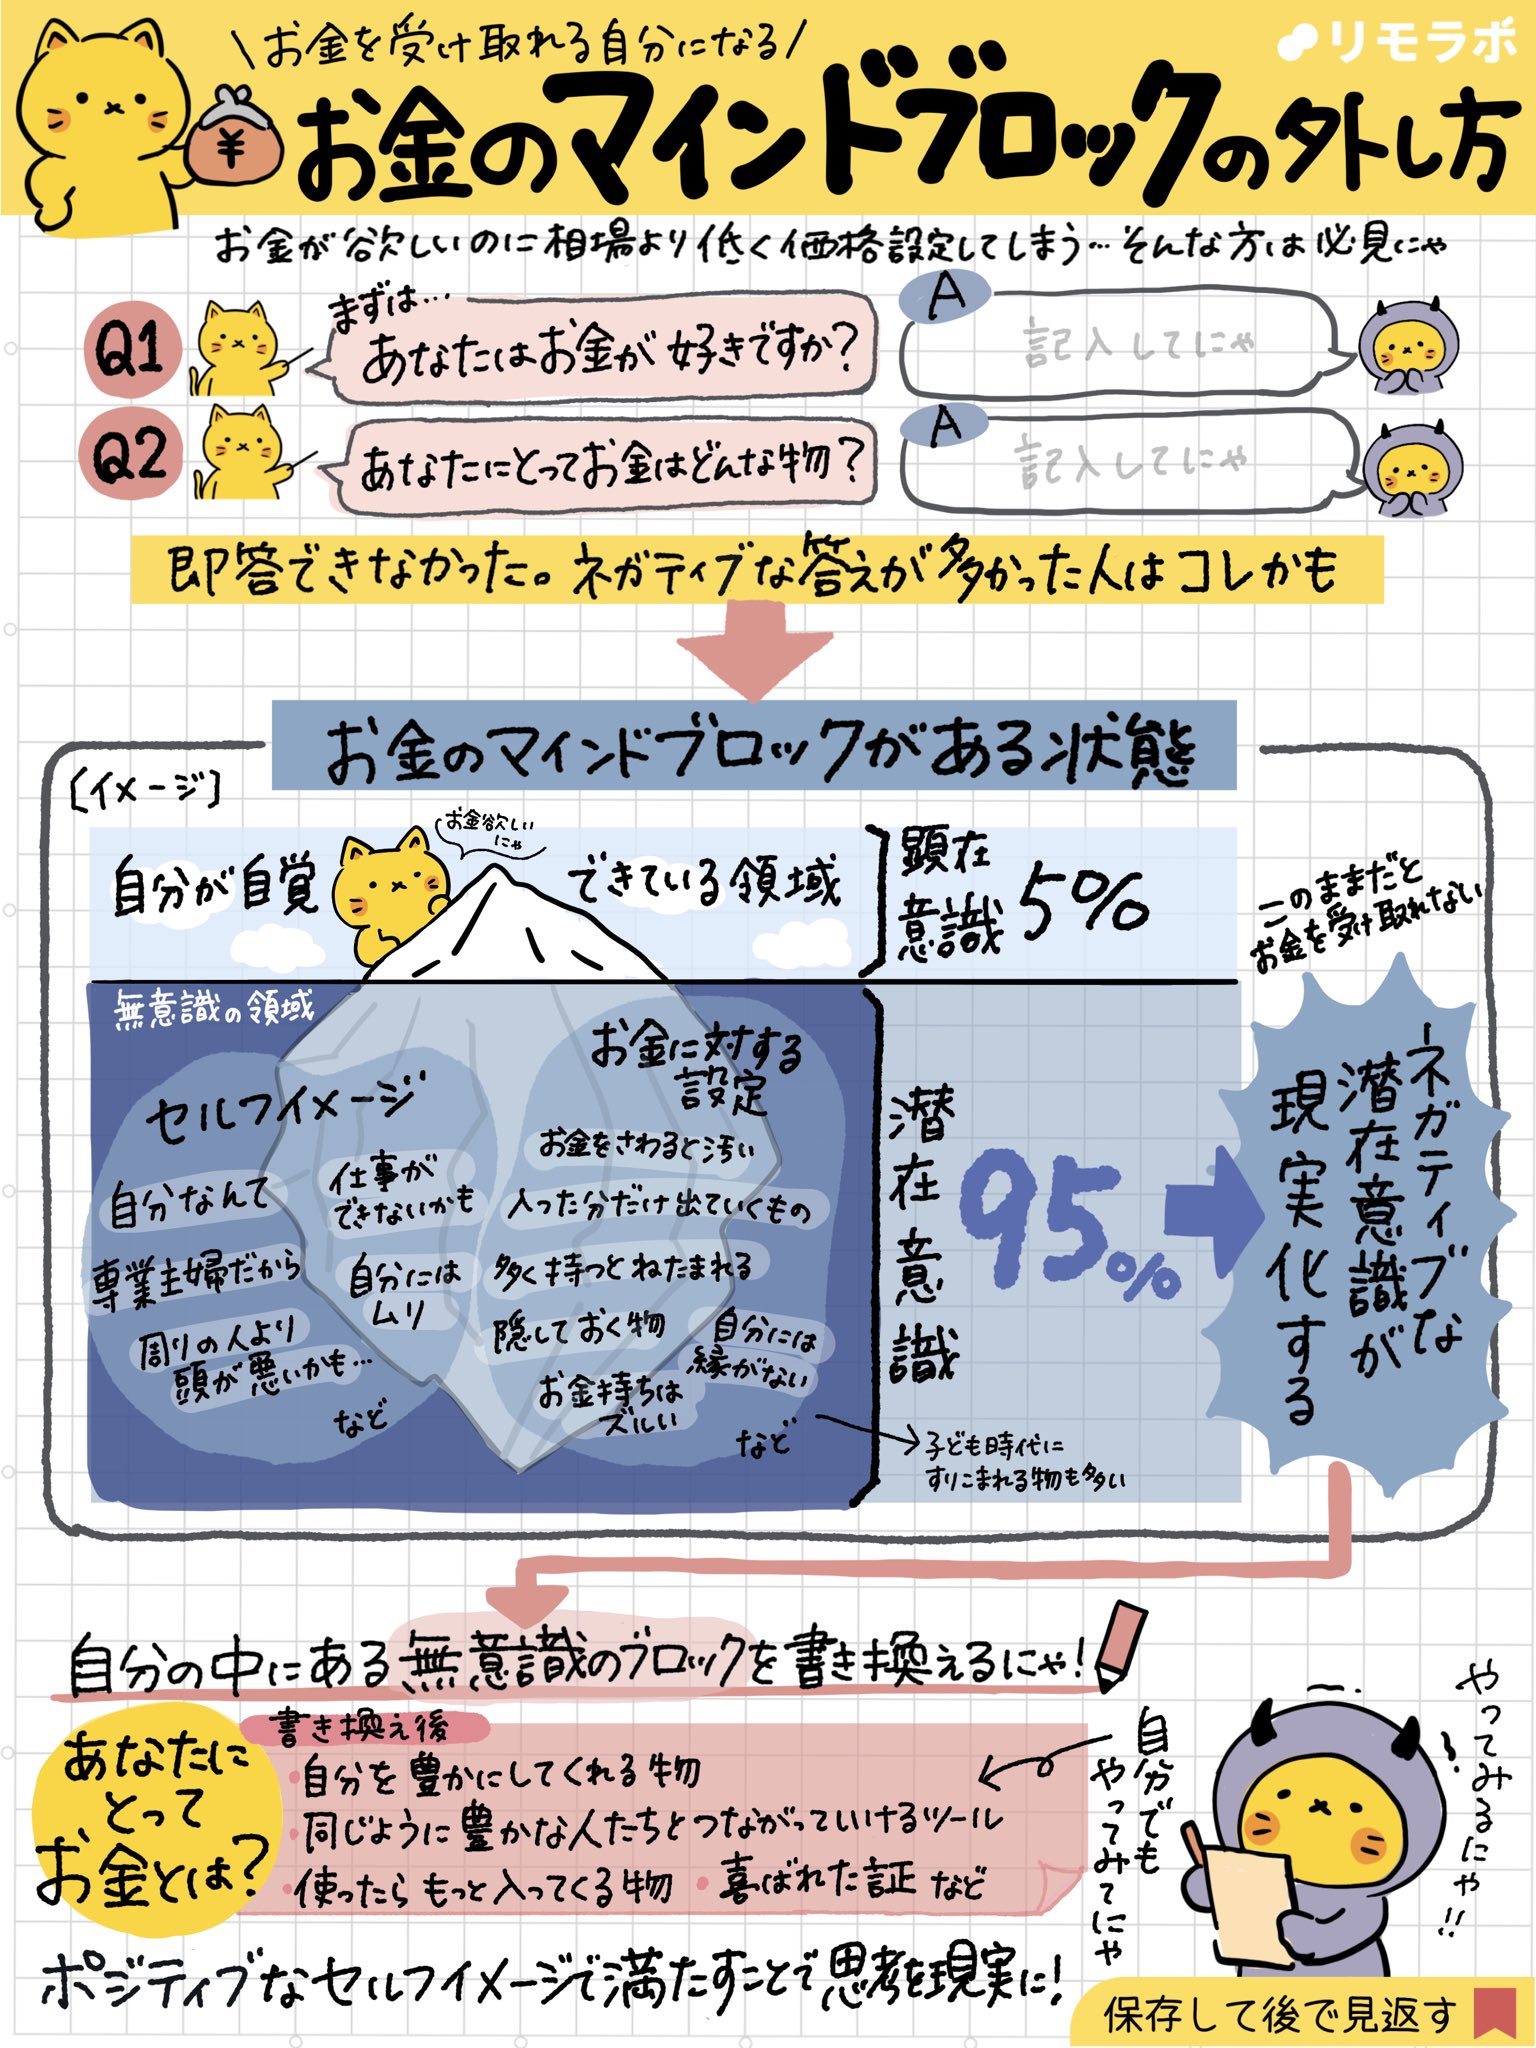 \お金を受け取れる自分になる/
リモラボ
お金のマインドブロックの外し方
お金が欲しいのに相場より低く価格設定してしまう…そんな方は必見にゃ
Q1
まずは…
あなたはお金が好きですか?
A
記入してにゃ
Q2
あなたにとってお金はどんな物?
A
記入してにゃ
即答できなかった。ネガティブな答えが多かった人はコレかも
お金のマインドブロックがある状態
[イメージ]
お金欲しい
にゃ
自分が自覚できている領域
顕在
意識
5%
無意識の領域
セルフイメージ
自分なんて
仕事が
できないかも
専業主婦だから
自分には
ムリ
周りの人より
頭が悪いかも…
など
お金に対する
設定
お金をさわると汚い
入った分だけ出ていくもの
多く持つとねたまれる
隠しておく物
自分には
縁がない
お金持ちは
ズルい
など
子ども時代に
すりこまれる物も多い
潜在意識
95%
このままだと
お金を受け取れない
ネガティブな
潜在意識が
現実化する
自分の中にある無意識のブロックを書き換えるにゃ!
あなたに
とって
お金とは?
書き換え後
・自分を豊かにしてくれる物
・同じように豊かな人たちとつながっていけるツール
・使ったらもっと入ってくる物 ・喜ばれた証 など
自分でも
やってみてにゃ
やってみるにゃ!!
ポジティブなセルフイメージで満たすことで思考を現実に!
保存して後で見返す
¥